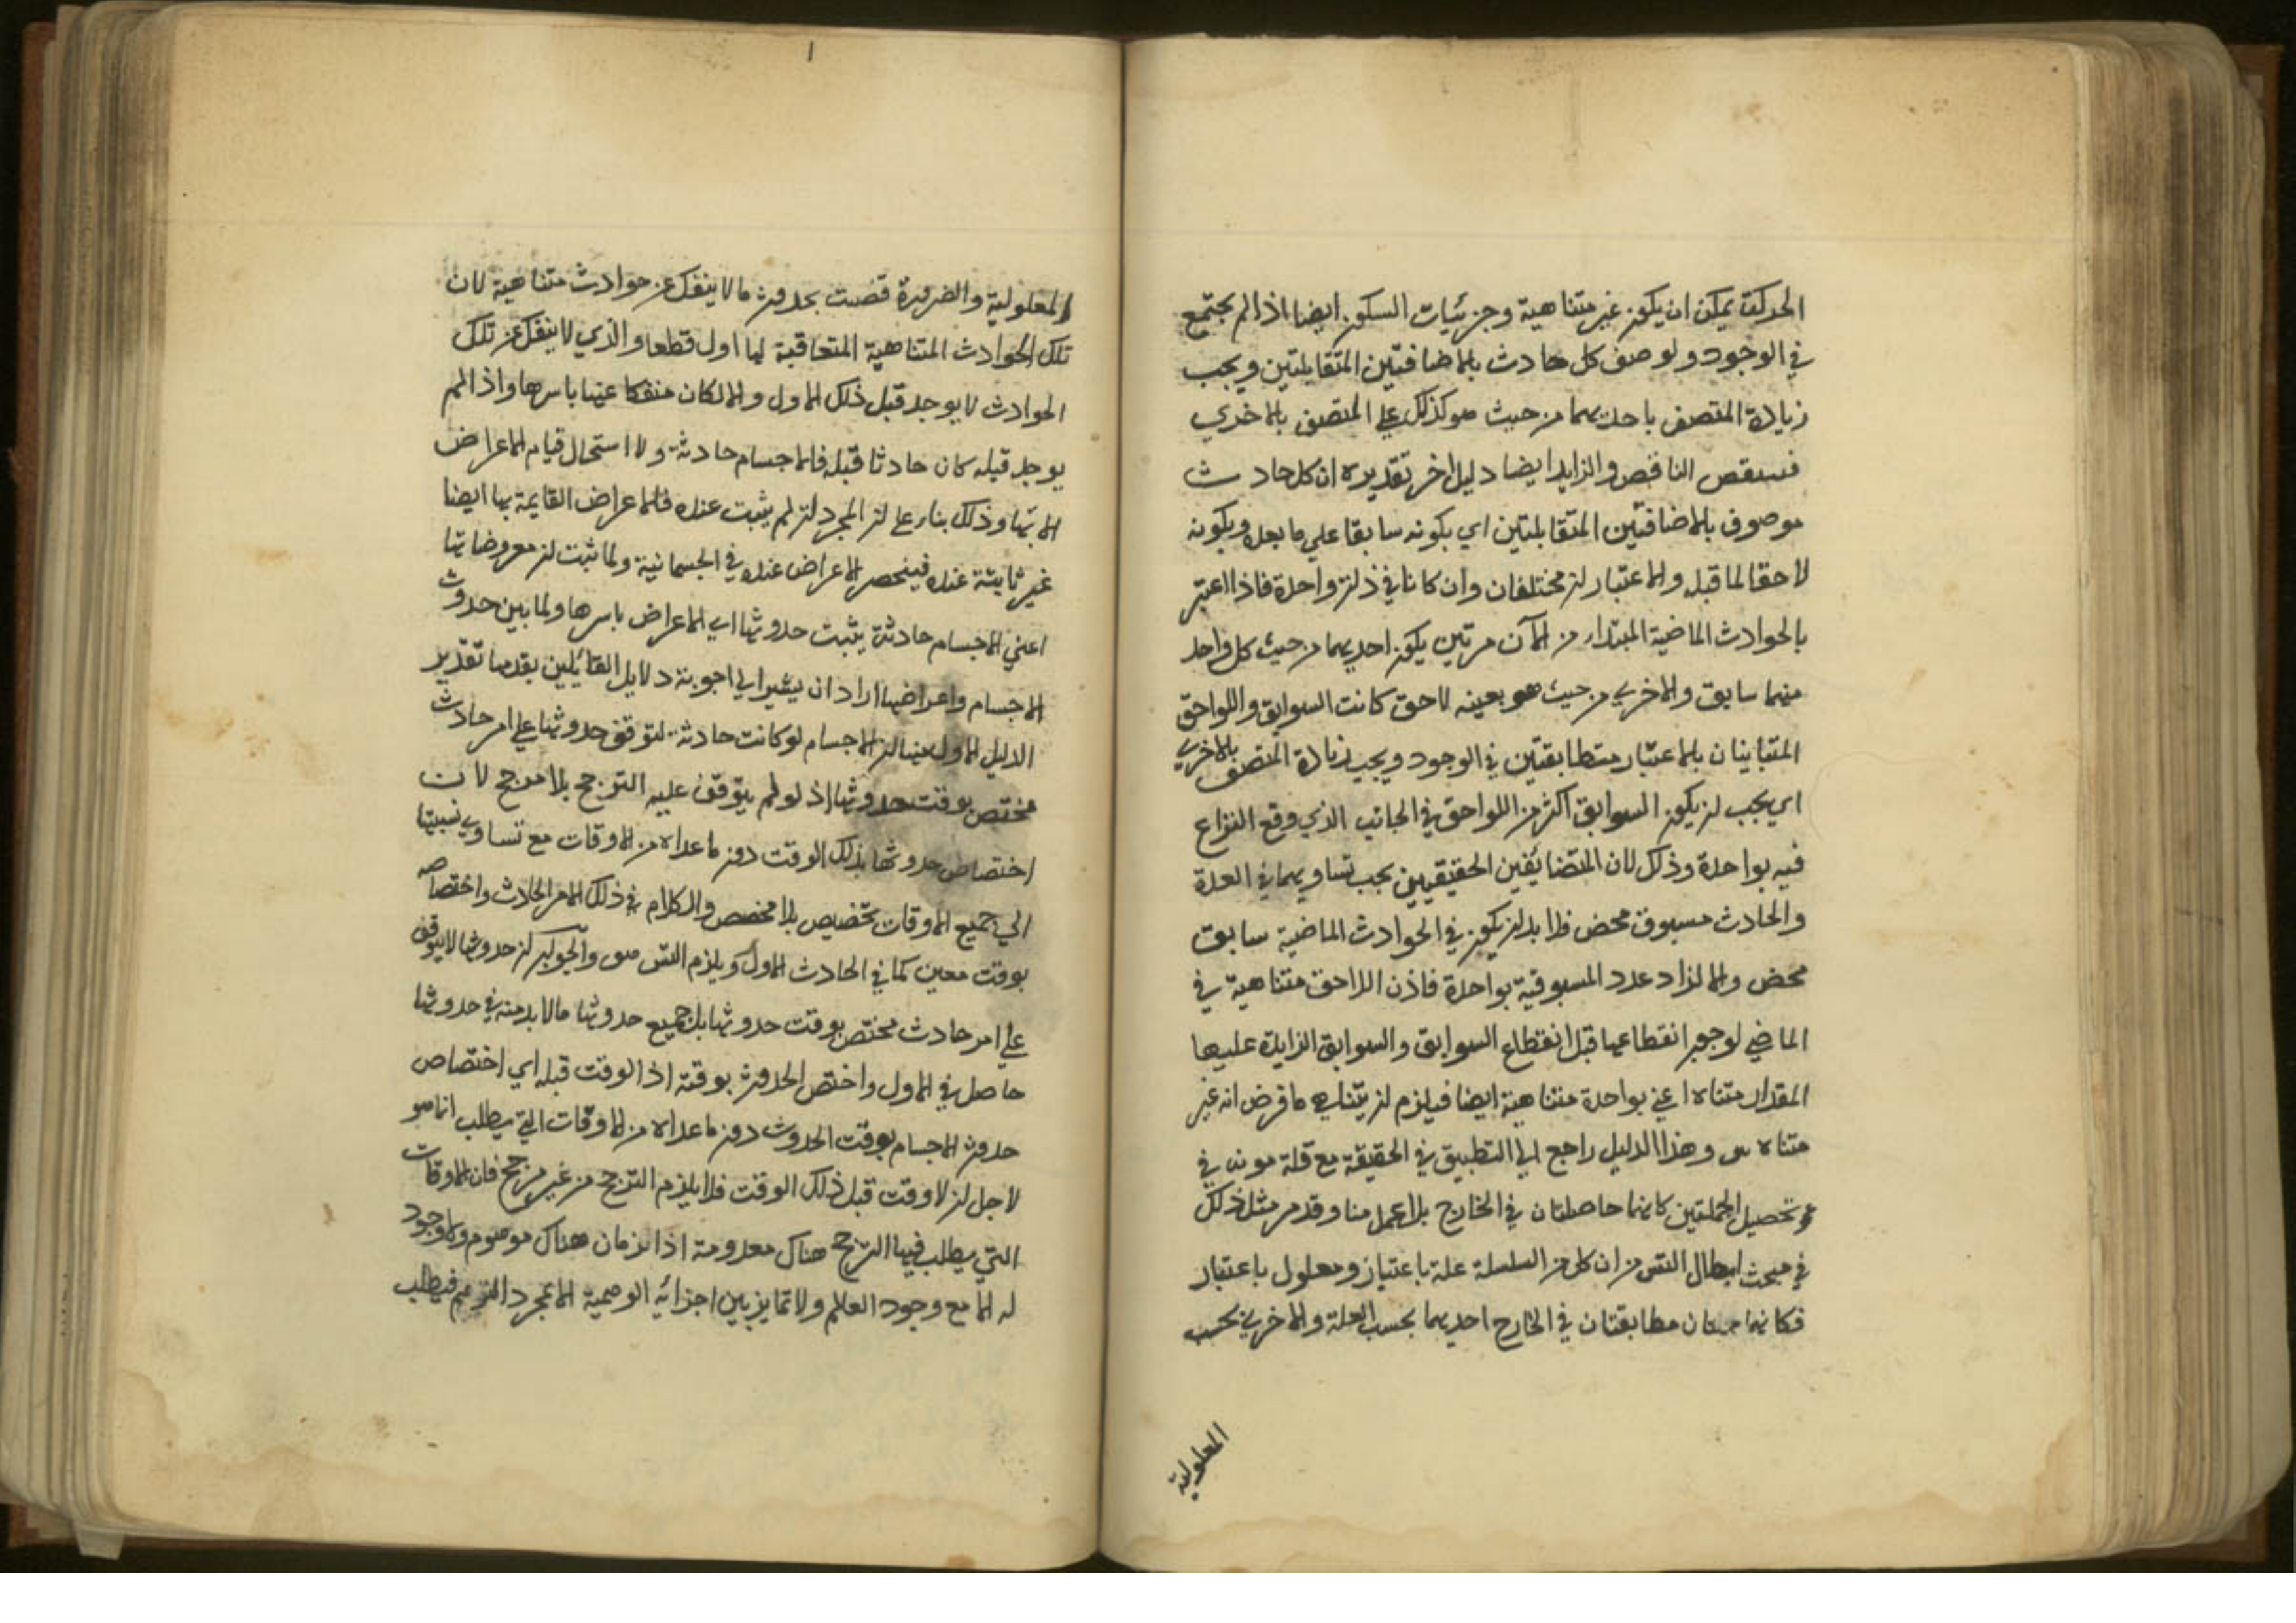 الحركة يمكن ان يكون غير متناهية وجزئيات السكون ايضا اذا لم يجتمع
في الوجود ولوصف كل حادث بالاضافتين المتقابلتين ويجب
زيادة المتصف باحديهما من حيث هو كذلك علي المتصف بالاخري
فينقص الناقص والزايد ايضا دليل اخر تقديره ان كل حادث
موصوف بالاضافتين المتقابلتين اي بكونه سابقا علي ما بعده وبكونه
لاحقا لما قبله والاعتباران مختلفان وان كانا في ذات واحدة فاذا اعتبر
بالحوادث الماضية المبتداء من الآن مرتين يكون احديهما من حيث كل واحد
منهما سابق والاخري من حيث هو بعينه لاحق كانت السوابق واللواحق
المتباينان بالاعتبار متطابقتين في الوجود ويجب زيادة المتصف بالاخري
اي يجب ان يكون السوابق اكثر من اللواحق في الجانب الذي وقع النزاع
فيه بواحدة وذلك لان المتضايفين الحقيقيين يجب تساويهما في العدة
والحادث مسبوق محض فلا بد ان يكون في الحوادث الماضية سابق
محض والا لزاد عدد المسبوقية بواحدة فاذن اللاحق متناهية في
الماضي لوجوب انقطاعها قبل انقطاع السوابق والسوابق الزايدة عليها
المقدار متناه اعني بواحدة متناهية ايضا فيلزم ان يتناهي ما فرض انه غير
متناه هف وهذا الدليل راجع الي التطبيق في الحقيقة مع قلة مونه في
تحصيل الجملتين كانهما حاصلتان في الخارج بلا عمل منا وقد مر مثل ذلك
في مبحث ابطال التس من ان كل من السلسلة علة باعتبار ومعلول باعتبار
فكانهما جملتان مطابقتان في الخارج احديهما بحسب العلة والاخري بحسب
المعلولية
ا
المعلولية والضرورة قضت بحدوث ما لا ينفك عن حوادث متناهية لان
تلك الحوادث المتناهية المتعاقبة لها اول قطعا والذي لا ينفك عن تلك
الحوادث لا يوجد قبل ذلك الاول والا لكان منفكا عنها باسرها واذا لم
يوجد قبله كان حادثا قبله فالاجسام حادثة ولا استحال قيام الاعراض
الا بها وذلك بناء علي ان المجرد ان لم يثبت عنده فالاعراض القايمة بها ايضا
غير ثابتة عنده فينحصر الاعراض عنده في الجسمانية ولما ثبت ان معروضاتها
اعني الاجسام حادثة يثبت حدوثها اي الاعراض باسرها ولما بين حدوث
الاجسام واعراضها اراد ان يشير الي اجوبة دلايل القائلين بقدمها تقدير
الدليل الاول منها ان الاجسام لو كانت حادثة لتوقف حدوثها علي امر حادث
مختص بوقت حدوثها اذ لو لم يتوقف عليه الترجح بلا مرجح لان
اختصاص حدوثها بذلك الوقت دون ما عداه من الاوقات مع تساوي نسبتها
الي جميع الاوقات تخصيص بلا مخصص والكلام في ذلك الامر الحادث واختصاصه
بوقت معين كما في الحادث الاول ويلزم التس هف والجواب ان حدوثها لا يتوقف
علي امر حادث مختص بوقت حدوثها بل جميع حدوثها مالا بد منه في حدوثها
حاصل في الاول واختص الحدوث بوقته اذ الوقت قبله اي اختصاص
حدوث الاجسام بوقت الحدوث دون ما عداه من الاوقات التي يطلب انما هو
لاجل ان لا وقت قبل ذلك الوقت فلا يلزم الترجح من غير مرجح فان الاوقات
التي يطلب فيها الترجح هناك معدومة اذ الزمان هناك موهوم ولا وجود
له الا مع وجود العالم ولا تمايز بين اجزائه الوهمية الا بمجرد التوهم فيطلب